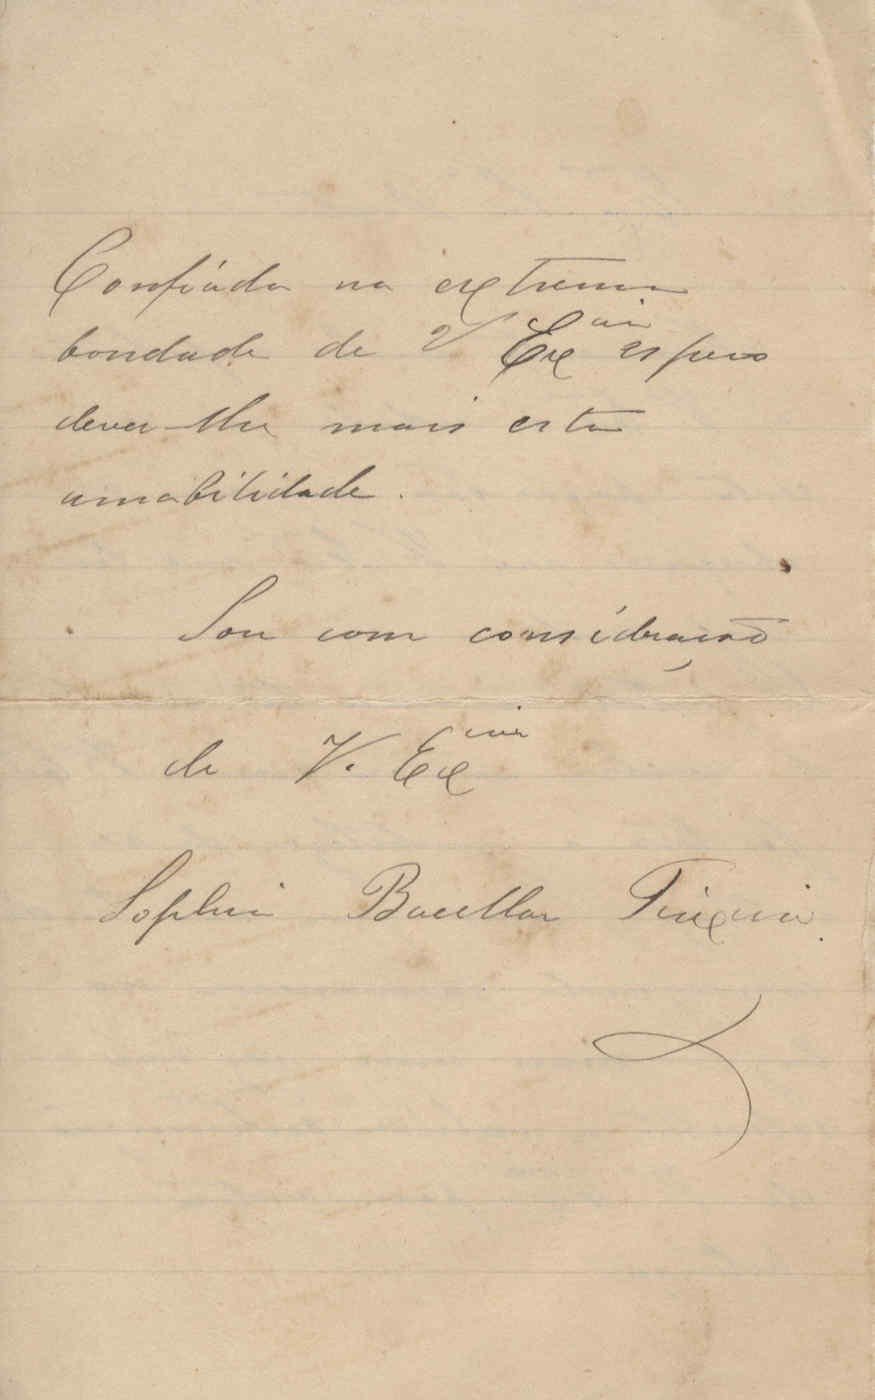 Confiada na extrema
bondade de V Excia espero
dever-lhe mais esta
amabilidade.
Sou com consideração
de V. Excia
Sophia Bacellar Teixeira.